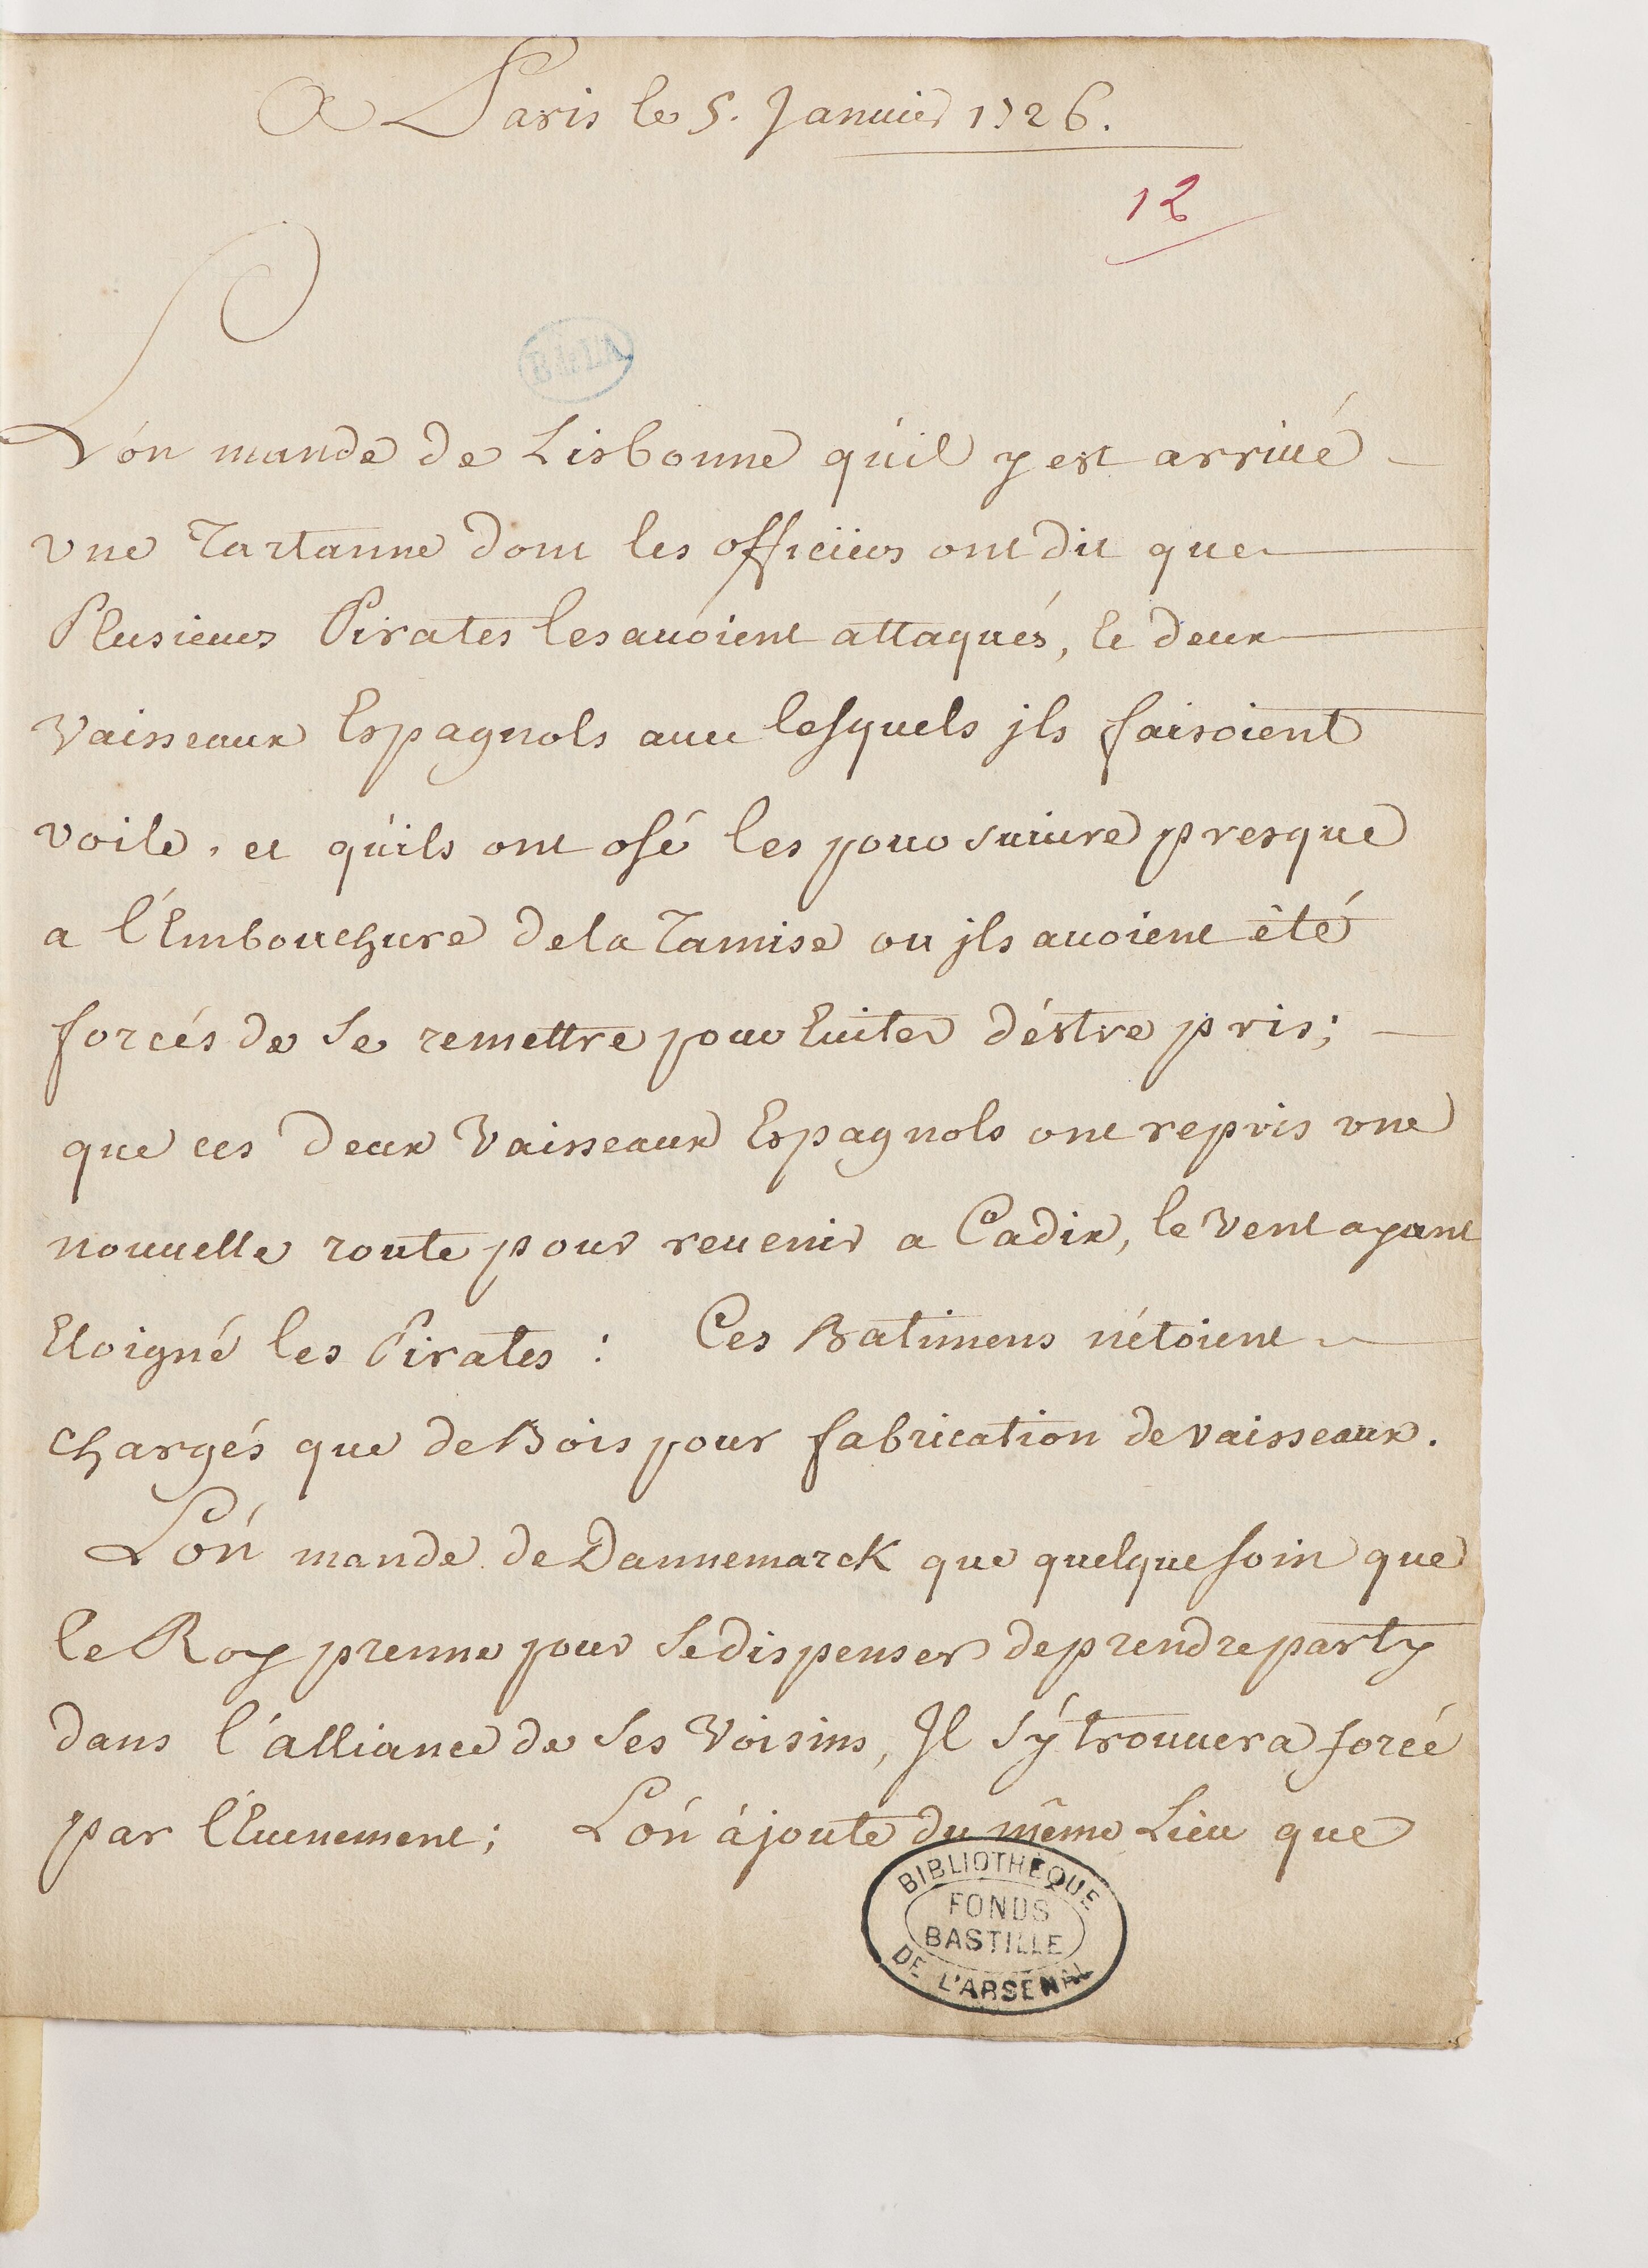 A Paris le 5. Janvier 1726.
12
B.de.L'A
L'on mande de Lisbonne qu'il y est arriué
vne Tartanne dont les officiers ont dit que
Plusieurs Pirates les auoient attaqués, le deux
Vaisseaux Espagnols auec lesquels jls faisoient
voile, et qu'ils ont osé les poursuiure presque
a l'Embouchure dela Tamise ou jls auoient été
forcés de se remettre pour Euiter d'éstre pris;
que ces deux Vaisseaux Espagnols ont repris vne
nouuelle route pour reuenir a Cadix, le Vent ayant
Eloigné les Pirates : Ces Batimens n'étoient
chargés que de Bois pour fabrication de vaisseaux.
L'on mande de Dannemarck que quelque soin que
le Roy prenne pour se dispenser de prendre party
dans l'alliance de ses Voisins, Il s'y trouuera forcé
par l'Euenement; L'on ajoute du même Lieu que
BIBLIOTHÈQUE
FONDS
BASTILLE
DE L'ARSENAL